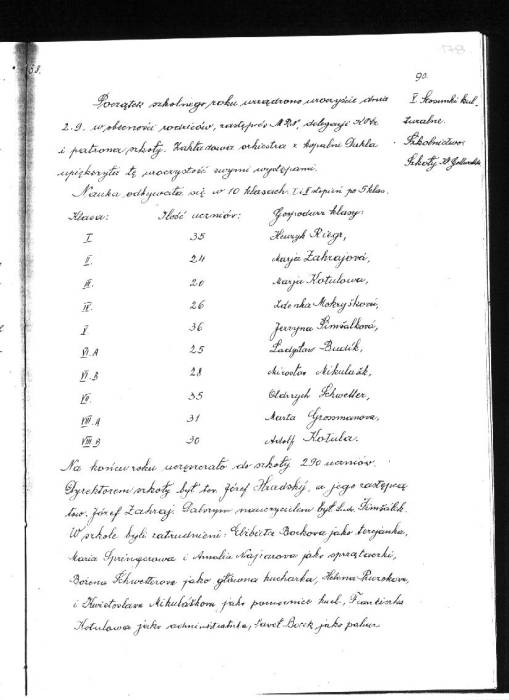 90.
Początek szkolnego roku urządzono uroczyście dnia
2.9. w obecności rodziców, zastępców MRN, delegacje
i patrona szkoły. Zakładowa orkiestra z kopalni Dukla
upiększyła tę uroczystość swymi występami.
Nauka odbywała się w 10 klasach. I i II stopień po 5 klas.
V. Stosunki kul-
turalne.
Szkolnictwo.
Szkoły
Klasa: Ilość uczniów: Gospodarz klasy:
I 35 Henryk Rieger,
II. 24 Marja Zahrajová,
III. 20 Marja Kotulowa,
IV. 26 Zdenka Mokryšková,
V 36 Jarzyna Šimšalková,
VI.A 25 Ladysław Budík,
VI.B 28 Mirosław Mikulašk,
VII. 35 Oldrzych Schwetter,
VIII.A 31 Marta Grossmanova,
VIII.B 30 Adolf Kotula.
Na końcu roku uczęszczało do szkoły 290 uczniów.
Dyrektorem szkoły był tow. Józef Hradský, a jego zastępcą
tow. Józef Zahraj. Dalszym nauczycielem był Ludv. Šimšálek.
W szkole byli zatrudnieni: Elżbieta Bockova jako terejanka,
Maria Springerowa i Amalia Najzarova jako sprzątaczki,
Bożena Schwetterova jako główna kucharka, Helena
i Kwietosława Mikuláškova jako pomocnice kuch., Franciszka
Kotulowa jako administratorka, Paweł Bocek jako palacz